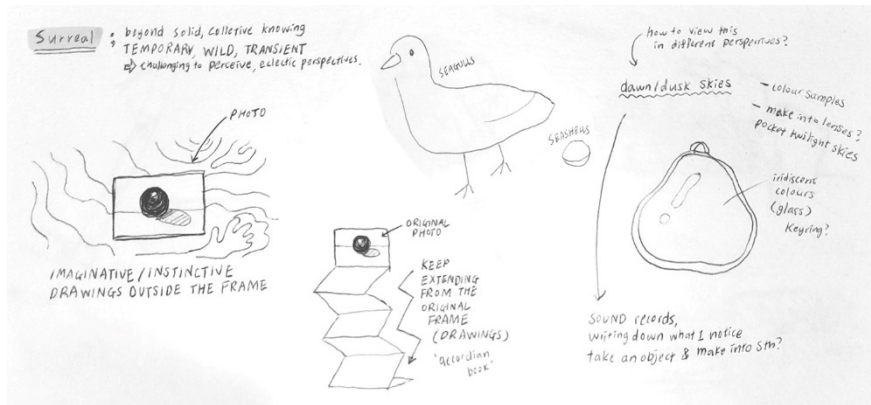 Surreal ; beyond solid, colletive knowing
TEMPORARY, WILD, TRANSIENT
⇒ challenging to perceive, eclectic perspectives.
PHOTO
IMAGINATIVE/INSTINCTIVE
DRAWINGS OUTSIDE THE FRAME
SEAGULLS
SEASHELLS
ORIGINAL
PHOTO
KEEP
EXTENDING
FROM THE
ORIGINAL
FRAME
(DRAWINGS)
'accordian
book'
how to view this
in different perspectives?
dawn/dusk skies
- colour samples
- make into lenses?
pocket twilight skies
iridiscent
colours
(glass)
Keyring?
SOUND records,
writing down what I notice
take an object & make into sth?